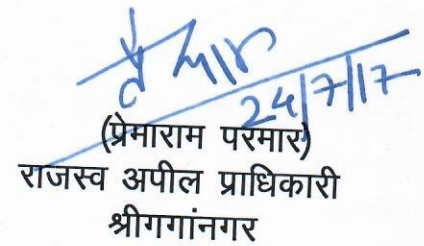 24/7/17
(प्रेमाराम परमार)
राजस्व अपील प्राधिकारी
श्रीगगांनगर